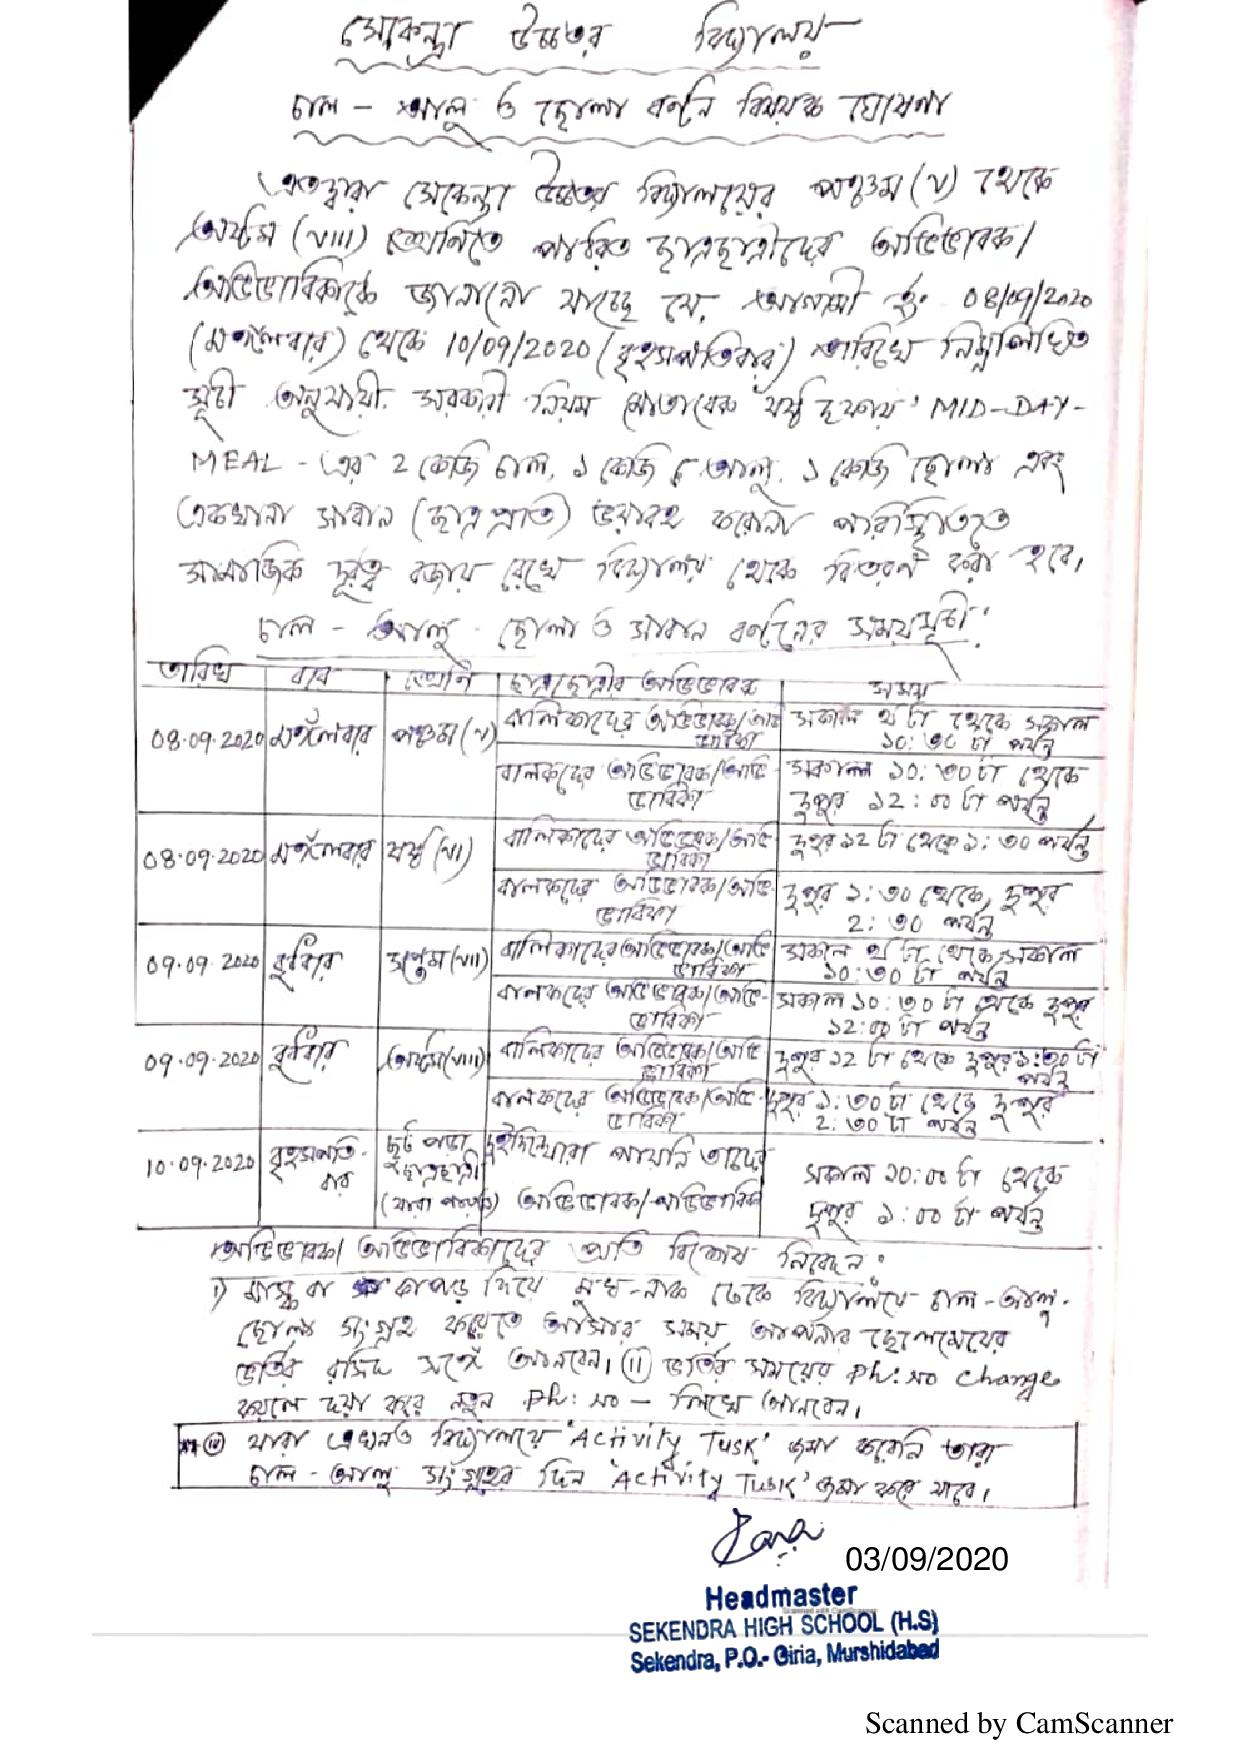 সেকেন্দ্রা উচ্চতর বিদ্যালয়
চাল - আলু ও ছোলা বণ্টন বিষয়ক ঘোষনা
এতদ্বারা সেকেন্দ্রা উচ্চতর বিদ্যালয়ের পঞ্চম (V) থেকে
অষ্টম (VIII) শ্রেণিতে পাঠরত ছাত্রছাত্রীদের অভিভাবক/
অভিভাবিকাকে জানানো যাচ্ছে যে, আগামী ইং 08/09/2020
(মঙ্গলবার) থেকে 10/09/2020 (বৃহস্পতিবার) তারিখে নিম্নলিখিত
সূচী অনুযায়ী সরকারী নিয়ম মোতাবেক 'ষষ্ঠ দফায়' MID-DAY-
MEAL - এর 2 কেজি চাল, ১ কেজি আলু, ১ কেজি ছোলা এবং
একখানা সাবান (ছাত্র প্রতি) ভয়াবহ করোনা পরিস্থিতিতে
সামাজিক দূরত্ব বজায় রেখে বিদ্যালয় থেকে বিতরণ করা হবে।
চাল - আলু - ছোলা ও সাবান বণ্টনের সময়সূচী:
তারিখ বার শ্রেণি ছাত্রছাত্রীর অভিভাবক সময়
08.09.2020 মঙ্গলবার পঞ্চম (V) বালিকাদের অভিভাবক/অভিভাবিকা সকাল ৯ টা থেকে সকাল
১০:৩০ টা পর্যন্ত
বালকদের অভিভাবক/অভি- সকাল ১০:৩০ টা থেকে
ভাবিকা দুপুর ১২:০০ টা পর্যন্ত
08.09.2020 মঙ্গলবার ষষ্ঠ (VI) বালিকাদের অভিভাবক/অভি- দুপুর ১২ টা থেকে ১:৩০ পর্যন্ত
ভাবিকা
বালকদের অভিভাবক/অভি- দুপুর ১:৩০ থেকে, দুপুর
ভাবিকা 2:৩০ পর্যন্ত
09.09.2020 বুধবার সপ্তম (VII) বালিকাদের অভিভাবক/অভি- সকাল ৯ টা থেকে সকাল
ভাবিকা ১০:৩০ টা পর্যন্ত
বালকদের অভিভাবক/অভি- সকাল ১০:৩০ টা থেকে দুপুর
ভাবিকা ১২:০০ টা পর্যন্ত
09.09.2020 বুধবার অষ্টম (VIII) বালিকাদের অভিভাবক/অভি- দুপুর ১২ টা থেকে দুপুর ১:৩০ টা
ভাবিকা পর্যন্ত
বালকদের অভিভাবক/অভি- দুপুর ১:৩০ টা থেকে দুপুর
ভাবিকা 2:৩০ টা পর্যন্ত
10.09.2020 বৃহস্পতিবার ছুট পড়া ছাত্রছাত্রী যারা পায়নি তাদের সকাল ১০:০০ টা থেকে
অভিভাবক/অভিভাবিকা দুপুর ১:০০ টা পর্যন্ত
অভিভাবক/অভিভাবিকাদের প্রতি বিশেষ নিবেদন:
i) মাস্ক বা কাপড় দিয়ে মুখ-নাক ঢেকে বিদ্যালয়ে চাল-আলু-
ছোলা সংগ্রহ করতে আসার সময় আপনার ছেলেমেয়ের
ভর্তির রসিদ সঙ্গে আনবেন। (ii) ভর্তির সময়ের Ph: No change
করলে দয়া করে নতুন Ph: No - লিখে আনবেন।
যারা এখনও বিদ্যালয়ে 'Activity Tusk' জমা করেনি তারা
চাল - আলু সংগ্রহের দিন 'Activity Tusk' জমা করে যাবে।
03/09/2020
Headmaster
SEKENDRA HIGH SCHOOL (H.S)
Sekendra, P.O.- Giria, Murshidabad
Scanned by CamScanner